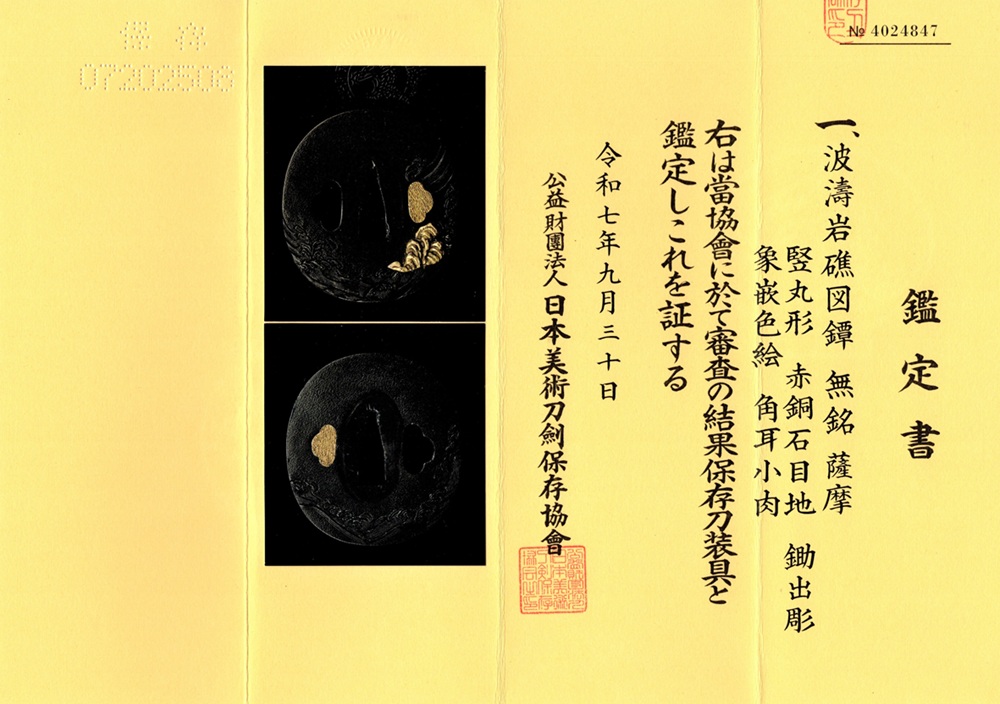 № 4024847
鑑定書
一、波濤岩礁図鐔 無銘 薩摩
竪丸形 赤銅石目地 鋤出彫
象嵌色絵 角耳小肉
右は當協會に於て審査の結果保存刀装具と
鑑定しこれを証する
令和七年九月三十日
公益財團法人 日本美術刀劍保存協會
保存
07202506